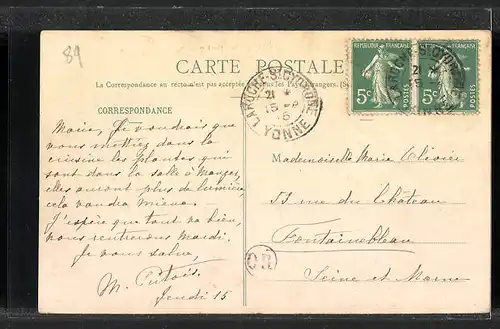 89
CARTE POSTALE
La Correspondance au recto n'est pas acceptée par tous les Pays Étrangers.
CORRESPONDANCE
LAROCHE-ST CYDROINE
YONNE
21
15
RÉPUBLIQUE FRANÇAISE
5c POSTES
5c POSTES
Marie, Je voudrais que
vous mettiez dans la
cuisine les plantes qui
sont dans la salle à manger,
elles auront plus de lumière,
cela vaudra mieux.
J'espère que tout va bien,
nous rentrerons Mardi.
Je vous salue,
M.
Jeudi 15
Mademoiselle Marie
53 rue du Château
Fontainebleau
Seine et Marne
OR